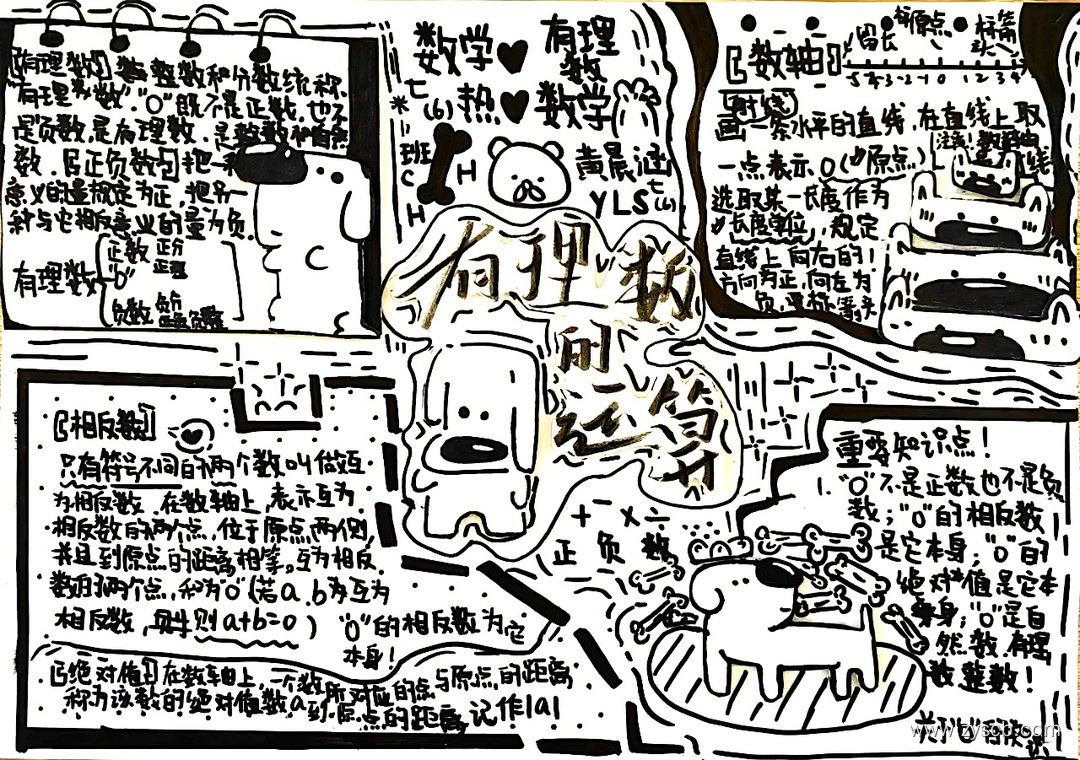 [有理数] 整数和分数统称
"有理数"."0"既不是正数,也不
是负数.是有理数.是整数和自然
数.[正负数]把一种
意义的量规定为正,把另一
种与它相反意义的量为负.
有理数
正数 正分
正整
"0"
负数 负分
数学♥有理
数
七(6)热♥数学
班
C H H
黄晨涵
YLS七(6)
有理数
的
运算
[数轴]
留长
标原点
标箭
头
-5 -4 -3 -2 -1 0 1 2 3 4
[射线]
画一条水平的直线,在直线上取
一点表示0(原点)
注意!
选取某一长度作为
长度单位,规定
直线上向右的!
方向为正,向左为
负,
[相反数]
只有符号不同的两个数叫做互
为相反数.在数轴上,表示互为
相反数的两个点,位于原点两侧,
并且到原点的距离相等。互为相反
数的两个点,和为"0"(若a.b为互为
相反数,则a+b=0)
"0"的相反数为它
本身!
[绝对值]在数轴上,一个数所对应的点与原点的距离
称为该数的绝对值数a到原点的距离记作|a|
+ - × ÷
正负数
重要知识点!
1."0"不是正数也不是负
数;"0"的相反数
是它本身;"0"的
绝对值是它本
身;"0"是自
然数.有理
数.整数!
关于"0"的
www.zysc6.com